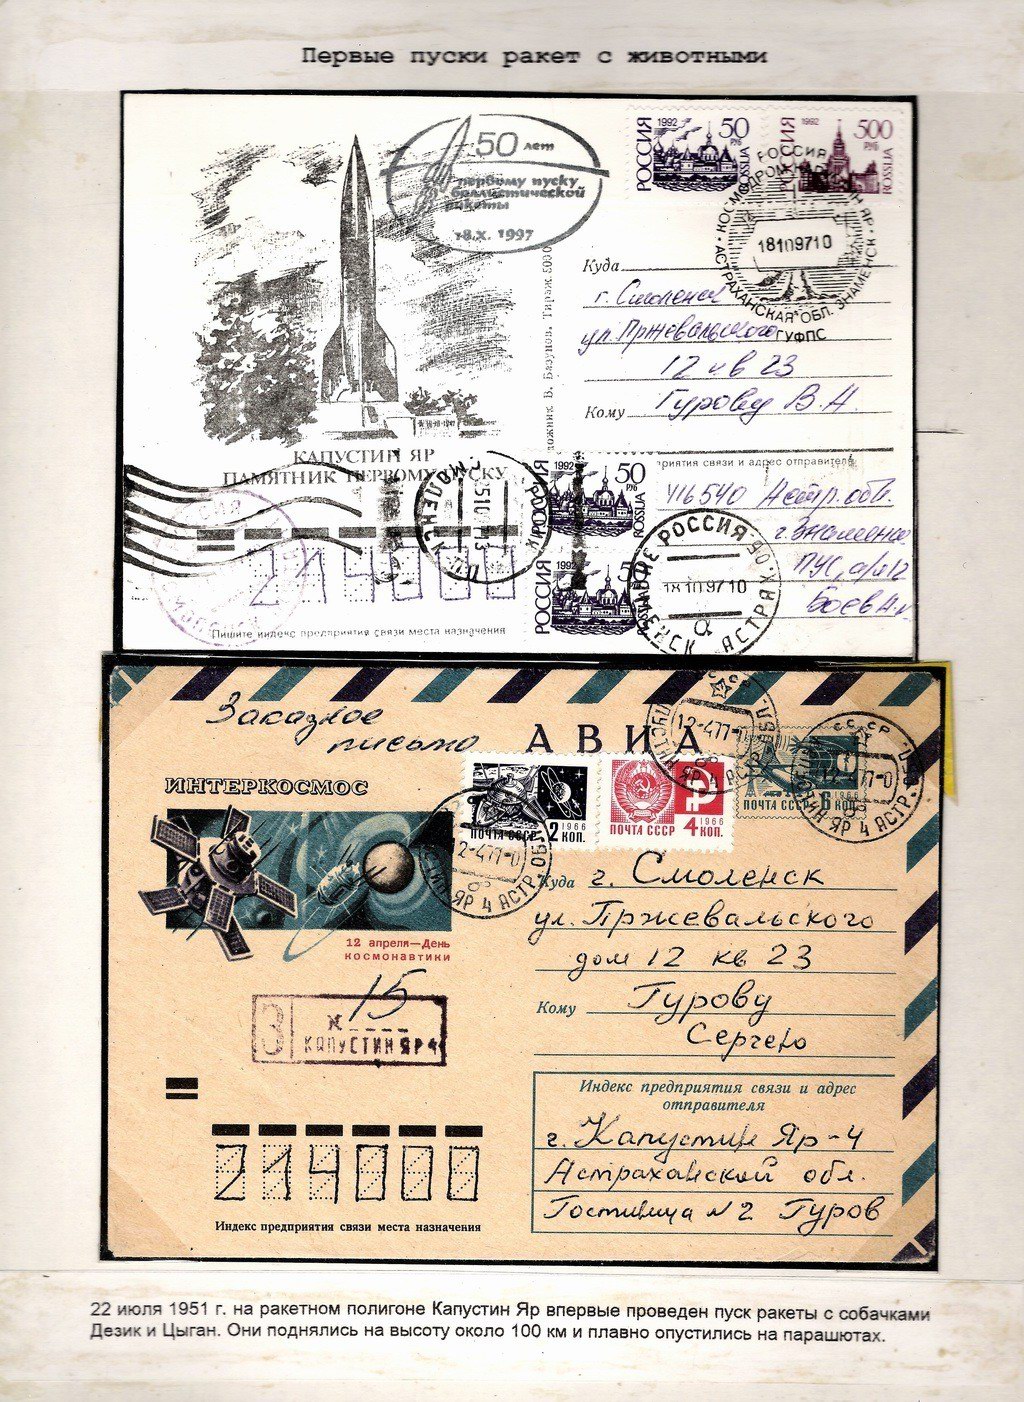 Первые пуски ракет с животными
50 лет
первому пуску
баллистической
ракеты
18.X. 1997
РОССИЯ 1992 50 РУБ ROSSIJA
РОССИЯ 1992 500 РУБ ROSSIJA
РОССИЯ
КОСМОДРОМ КАПУСТИН ЯР
18109710
АСТРАХАНСКАЯ ОБЛ. ЗНАМЕНСК
ГУФПС
Куда
г. Смоленск
ул. Пржевальского
12 кв 23
Кому Гурову В.А
КАПУСТИН ЯР
ПАМЯТНИК ПЕРВОМУ ПУСКУ
В. Бязунов. Тираж
РОССИЯ 1992 50 РУБ ROSSIJA
РОССИЯ 1992 50 РУБ ROSSIJA
приятия связи и адрес отправителя
416540 Астр. обл.
г. Знаменск
ПУС, а/я 12
Боев А.
РОССИЯ
18109710
214000
Пишите индекс предприятия связи места назначения
Заказное
письмо
АВИА
ИНТЕРКОСМОС
ПОЧТА СССР 1966 2 КОП.
ПОЧТА СССР 1966 4 КОП.
ПОЧТА СССР 1966 6 КОП.
12 апреля—День
космонавтики
Куда г. Смоленск
ул. Пржевальского
дом 12 кв 23
Кому Гурову
Сергею
15
З
КАПУСТИН ЯР 4
Индекс предприятия связи и адрес
отправителя
г. Капустин Яр-4
Астраханской обл.
Гостиница №2 Гуров
214000
Индекс предприятия связи места назначения
22 июля 1951 г. на ракетном полигоне Капустин Яр впервые проведен пуск ракеты с собачками
Дезик и Цыган. Они поднялись на высоту около 100 км и плавно опустились на парашютах.